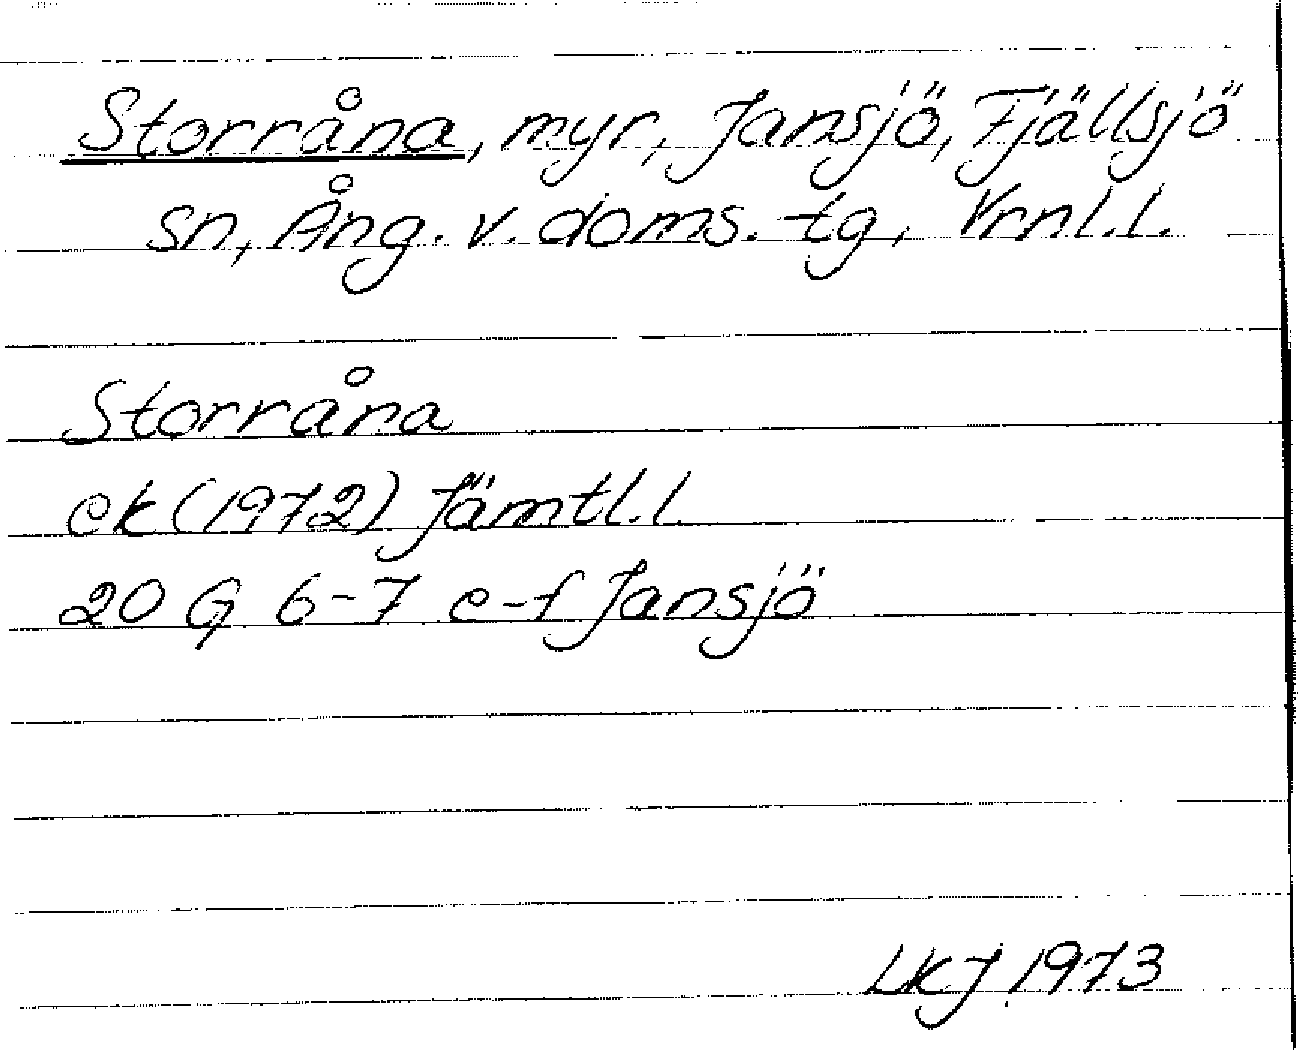 Storråna, myr, Jansjö, Fjällsjö
sn, Ång. v. doms. tg, Vrnl.l.
Storråna
ek (1972) Jämtl.l.
20 G 6-7 e-f Jansjö
LKJ 1973